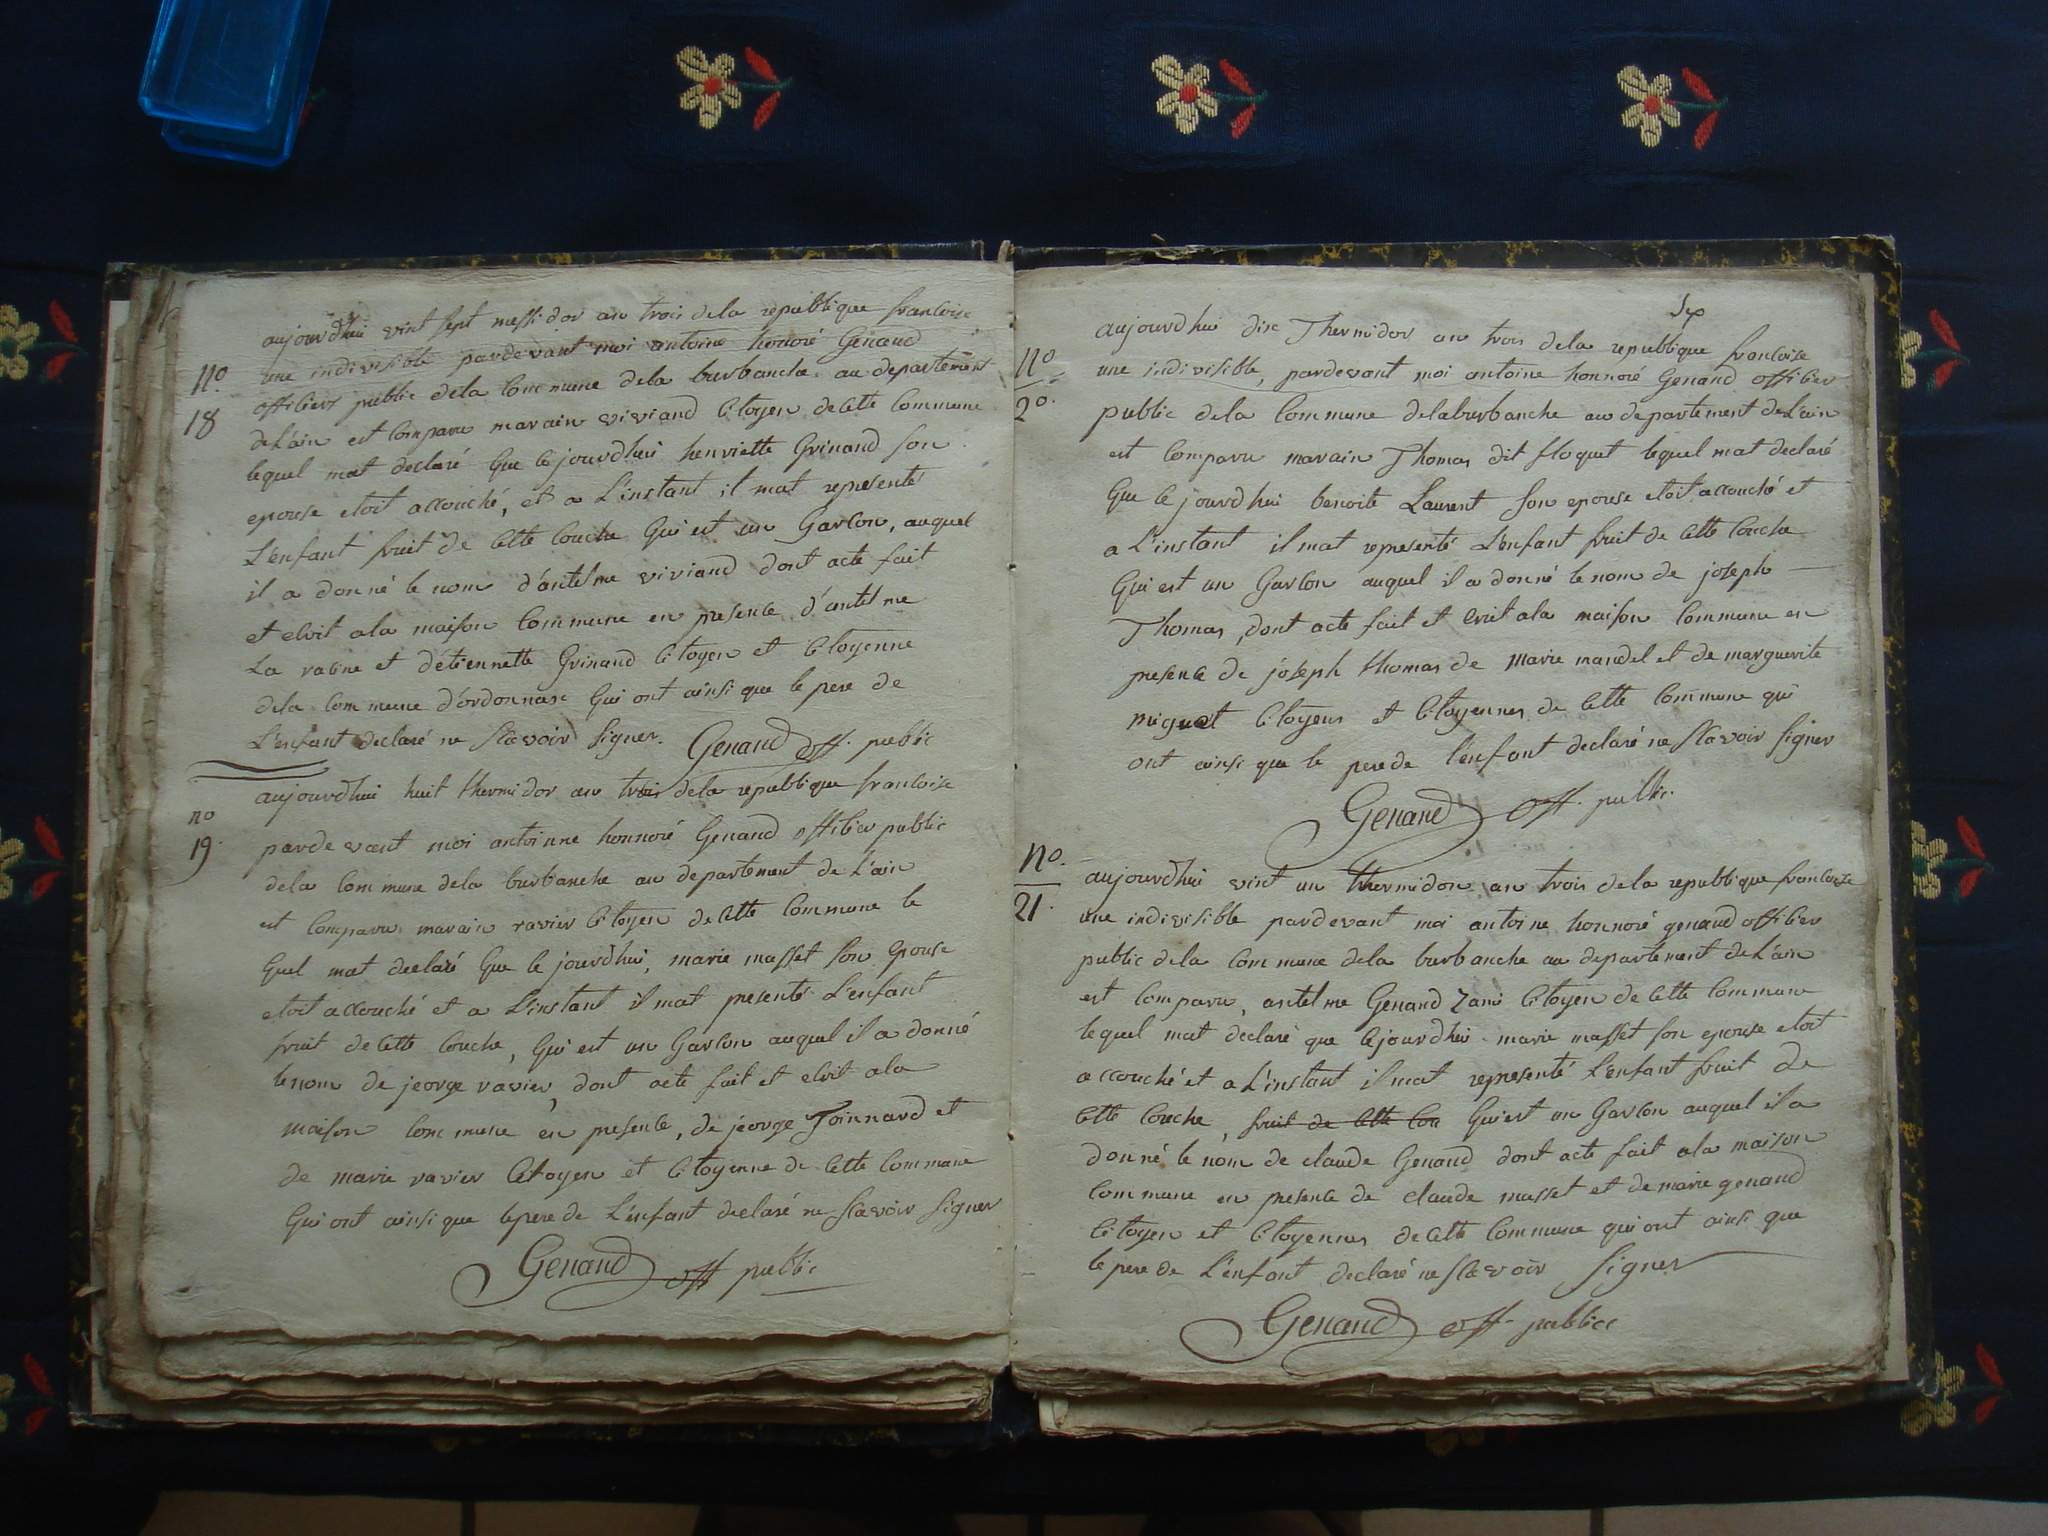 aujourdhui vint sept messidor an trois dela republique francoise
une indivisible pardevant moi antoine honoré Genand
no.
officier public dela Commune dela burbanche au departement
18
de L'ain est Comparu marain viviand Citoyen de Cette Commune
lequel mat declaré que Cejourdhui henriette Grinand son
epouse etoit accouché, et a L'instant il mat representé
L'enfant fruit de Cette Couche qui est un Garcon, auquel
il a donné le nom d'antelme viviand dont acte fait
et ecrit ala maison Commune en presence d'antelme
La racine et d'etiennette Grinand Citoyen et Citoyenne
dela Commune d'ordonnase qui ont ainsi que le pere de
L'enfant declaré ne scavoir signer. Genand off. public
aujourdhui huit thermidor an trois dela republique francoise
no
19.
pardevant moi antoinne honnoré Genand officier public
dela Commune dela burbanche au departement de L'ain
est Comparu marain ravier Citoyen de Cette Commune le
quel mat declaré que Ce jourdhui, marie masset son epouse
etoit accouché et a L'instant il mat presenté L'enfant
fruit de Cette Couche, qui est un Garcon auquel il a donné
le nom de jeorge ravier, dont acte fait et ecrit ala
maison Commune en presence, de jeorge Joinnard et
de marie ravier Citoyen et Citoyenne de Cette Commune
qui ont ainsi que le pere de L'enfant declaré ne scavoir signer
Genand off public
aujourdhui dix Thermidor an trois dela republique francoise
no
une indivisible, pardevant moi antoine honnoré Genand officier
20.
public dela Commune delaburbanche au departement de L'ain
est Comparu marain Thomas dit floquet lequel mat declaré
que Ce jourdhui benoite Laurent son epouse etoit accouché et
a L'instant il mat representé L'enfant fruit de Cette Couche
qui est un Garcon auquel il a donné le nom de joseph
Thomas, dont acte fait et ecrit ala maison Commune en
presence de joseph thomas de marie mandel et de marguerite
miguet Citoyens et Citoyennes de Cette Commune qui
ont ainsi que le pere de l'enfant declaré ne scavoir signer
Genand off. public
no.
21.
aujourdhui vint un thermidor an trois dela republique francoise
une indivisible pardevant moi antoine honnoré genand officier
public dela Commune dela burbanche au departement de L'ain
est Comparu, antelme Genand Citoyen de Cette Commune
lequel mat declaré que Cejourdhui marie masset son epouse etoit
accouché et a L'instant il mat representé L'enfant fruit de
Cette Couche, fruit de Cette Cou qui est un Garcon auquel il a
donné le nom de claude Genand dont acte fait ala maison
Commune en presence de claude masset et de marie genand
Citoyen et Citoyennes de Cette Commune qui ont ainsi que
le pere de L'enfant declaré ne scavoir signer
Genand off. public